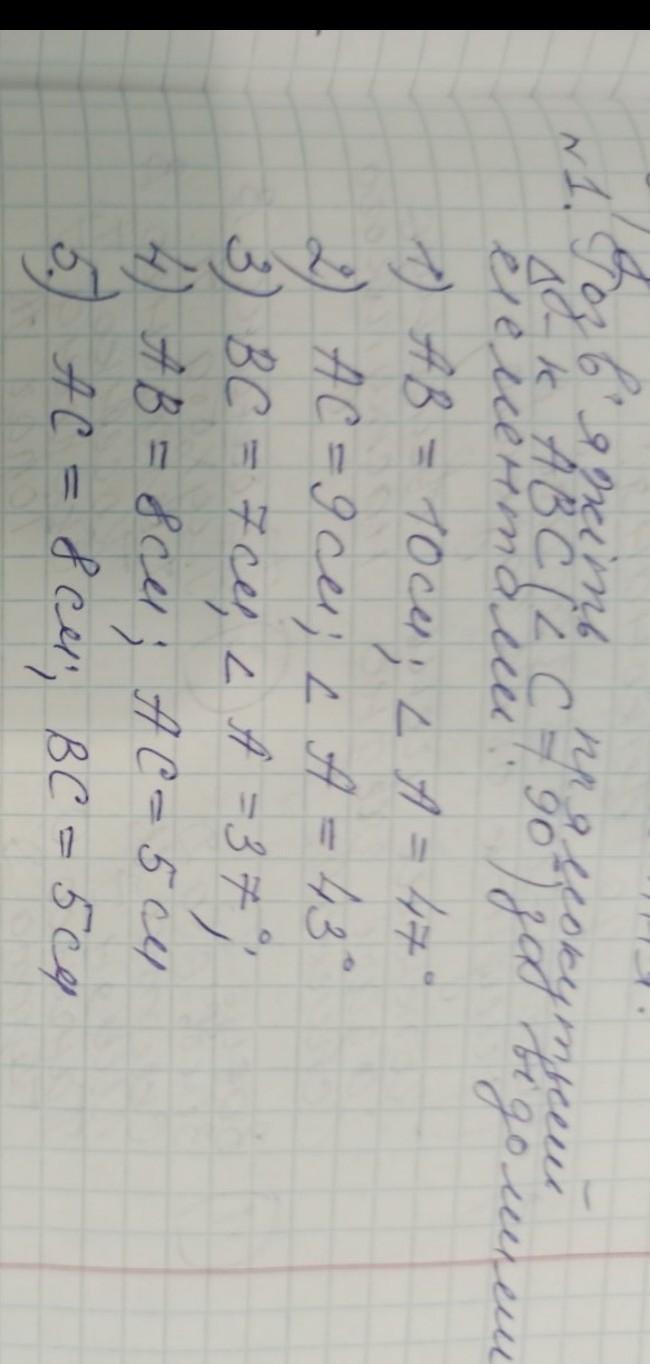 №1. Розв'яжіть прямокутний
Δв-к ABC (∠C = 90) за відомими
елементами:
1) AB = 10см; ∠A = 47°
2) AC = 9см; ∠A = 43°
3) BC = 7см, ∠A = 37°;
4) AB = 8см; AC = 5см
5) AC = 8см; BC = 5см